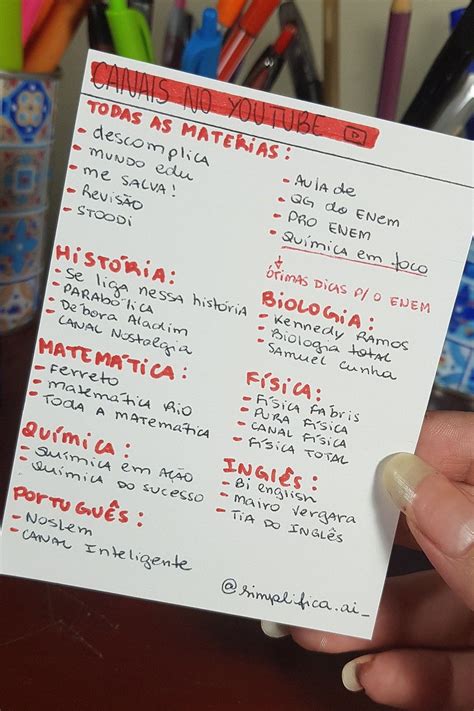 CANAIS NO YOUTUBE
TODAS AS MATERIAS:
- descomplica
- mundo edu
- me SALVA!
- Revisão
- STOODi
- AULA de
- QG do Enem
- PRO ENEM
- Química em foco
ÓTIMAS DICAS P/ O ENEM
HISTÓRIA:
- Se liga nessa história
- PARABÓLICA
- Débora Aladim
- CANAL Nostalgia
BIOLOGIA:
- Kennedy Ramos
- Biologia total
- Samuel Cunha
MATEMÁTICA:
- Ferreto
- matemática Rio
- Toda a matemática
FÍSICA:
- Física Fábris
- PURA Física
- CANAL Física
- Física TOTAL
QUÍMICA:
- Química em Ação
- Química do sucesso
INGLÊS:
- Bi english
- Mairo Vergara
- TIA do Inglês
PORTUGUÊS:
- Noslem
- CANAL Inteligente
@simplifica.ai_